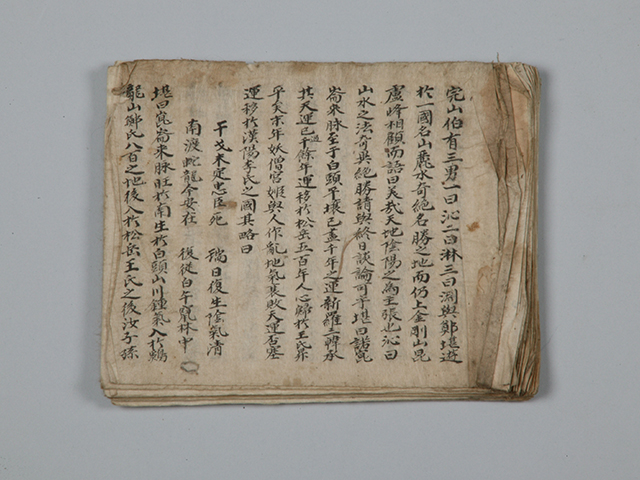 完山伯有三男一曰沁二曰淋三曰淵與鄭堪遊
於一國名山麗水奇絕名勝之地而仍上金剛山毘
盧峰相顧而語曰美哉天地陰陽之為主張也沁曰
山水之法奇異絕勝請與終日談論可乎堪曰諾崑
崙來脉至于白頭平壤已盡千年之運新羅三韓承
其天運已過千餘年運移於松岳五百年人心歸於王氏
乎癸未年妖僧宮姬與人作亂地氣衰敗天運否塞
運移於漢陽李氏之國其略曰
干戈未定忠臣死 瑞日復生陰氣清
南渡蛇龍今安在 後從白午 林中
堪曰崑崙來脉旺於南生於白頭山川鍾氣入於鷄
龍山鄭氏八百之地後入於松岳王氏之後汝子孫